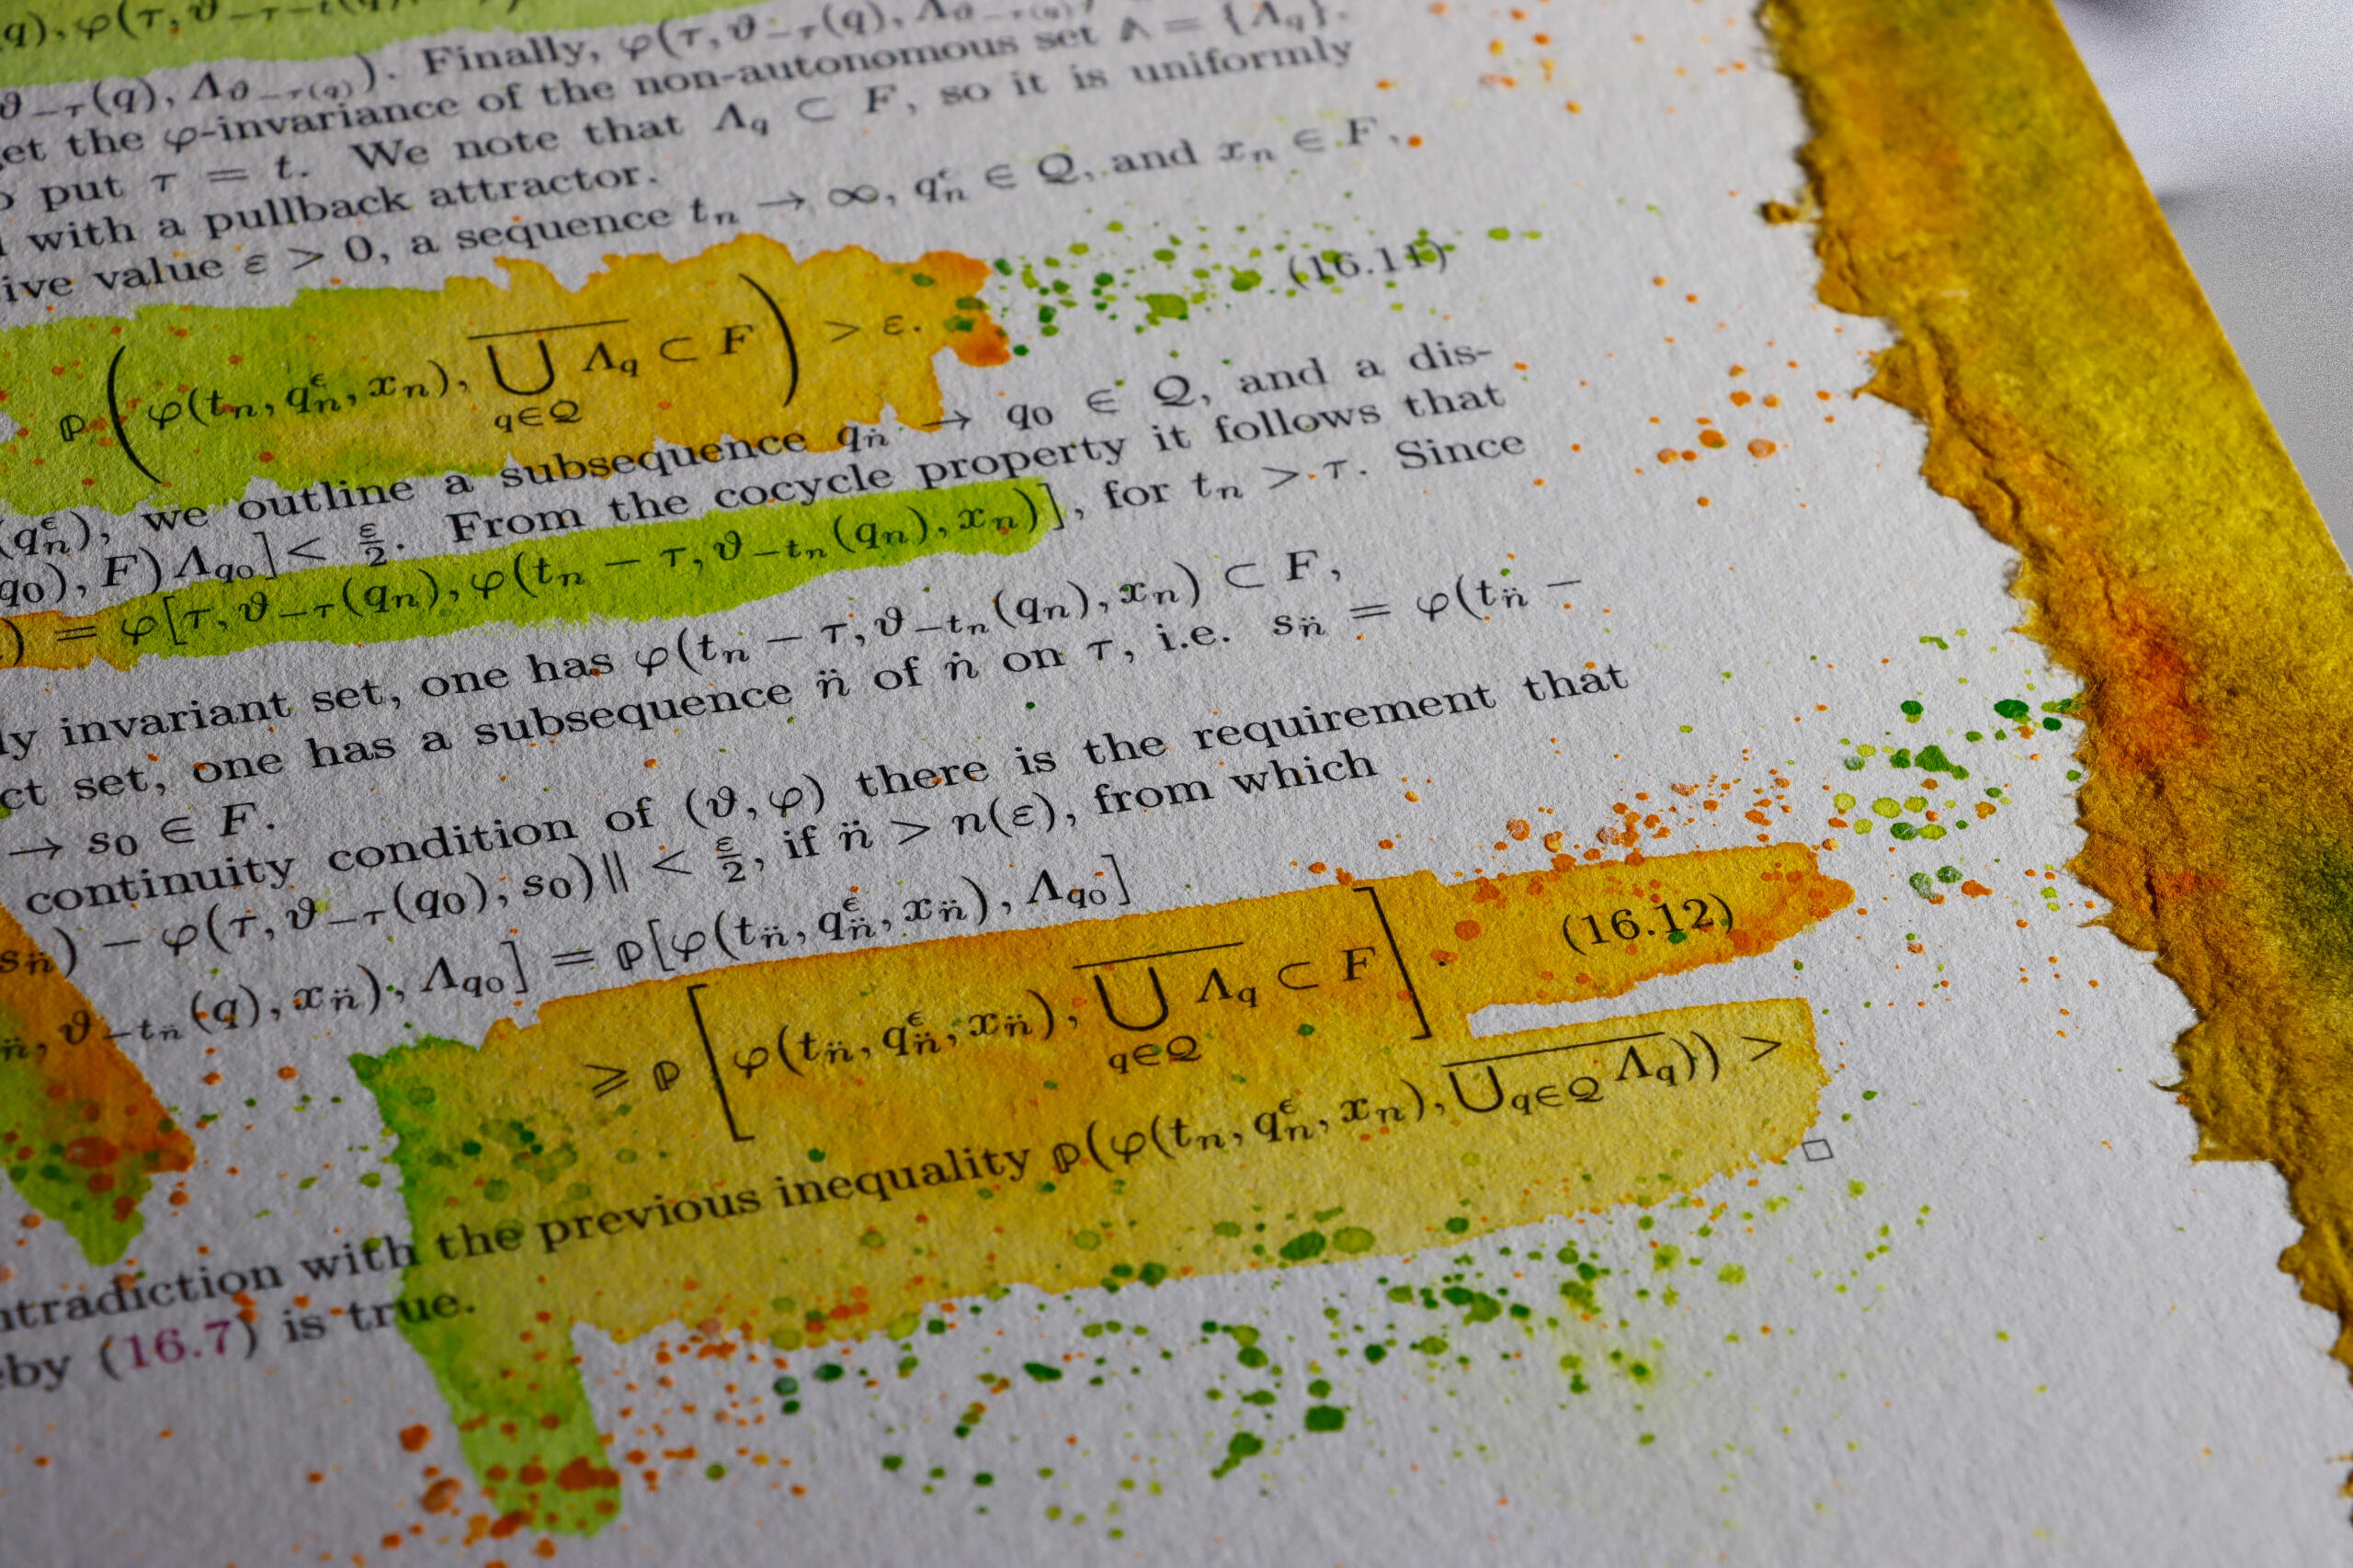 q), φ(τ, ϑ₋τ₋t(q),
ϑ₋τ(q), Λϑ₋τ(q)). Finally, φ(τ, ϑ₋τ(q), Λϑ₋τ(q))
et the φ-invariance of the non-autonomous set 𝔸 = {Λ_q}.
put τ = t. We note that Λ_q ⊂ F, so it is uniformly
with a pullback attractor.
ive value ε > 0, a sequence t_n → ∞, q_n^ϵ ∈ Q, and x_n ∈ F,
ℙ(φ(t_n, q_n^ϵ, x_n), \overline{⋃_{q∈Q} Λ_q} ⊂ F) > ε. (16.11)
(q_n^ϵ), we outline a subsequence q_ṅ → q₀ ∈ Q, and a dis-
q₀), F)Λ_{q₀}] < ε/2. From the cocycle property it follows that
) = φ[τ, ϑ₋τ(q_n), φ(t_n − τ, ϑ_{−t_n}(q_n), x_n)], for t_n > τ. Since
ly invariant set, one has φ(t_n − τ, ϑ_{−t_n}(q_n), x_n) ⊂ F,
ct set, one has a subsequence n̈ of ṅ on τ, i.e. s_n̈ = φ(t_n̈ −
→ s₀ ∈ F.
continuity condition of (ϑ, φ) there is the requirement that
s_n̈) − φ(τ, ϑ₋τ(q₀), s₀)‖ < ε/2, if n̈ > n(ε), from which
n̈, ϑ_{−t_n̈}(q), x_n̈), Λ_{q₀}] = ℙ[φ(t_n̈, q_n̈^ϵ, x_n̈), Λ_{q₀}]
⩾ ℙ[φ(t_n̈, q_n̈^ϵ, x_n̈), \overline{⋃_{q∈Q} Λ_q} ⊂ F]. (16.12)
ntradiction with the previous inequality ℙ(φ(t_n, q_n^ϵ, x_n), \overline{⋃_{q∈Q} Λ_q})) >
eby (16.7) is true. □